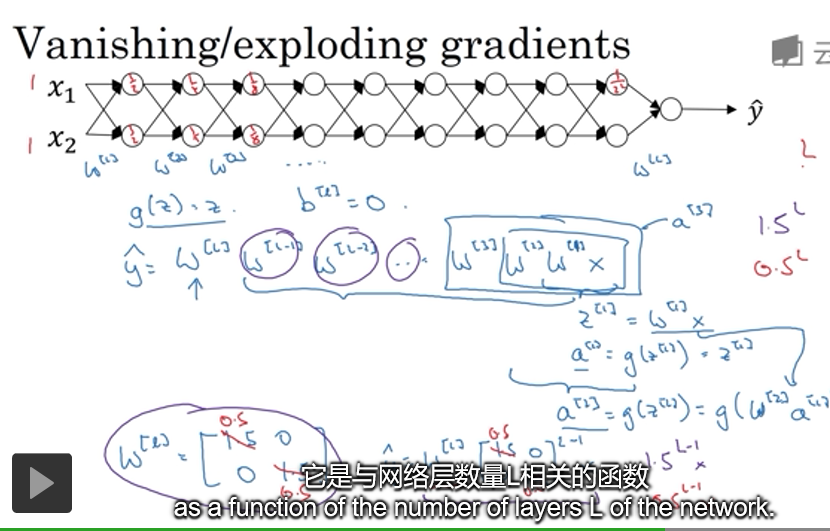 Vanishing/exploding gradients
云
1 x₁ 1/2 1/4 1/8 ŷ
1 x₂ 1/2 1/4 1/8
w^[1] w^[2] w^[3] ..... w^[L] L
g(z) = z. b^[l] = 0. a^[3]
1.5^L
ŷ = w^[L] w^[L-1] w^[L-2] ... w^[3] w^[2] w^[1] x
0.5^L
z^[1] = w^[1] x
a^[1] = g(z^[1]) = z^[1]
a^[2] = g(z^[2]) = g(w^[2] a^[1]
w^[l] = [1.5 0 0.5 w^[L] 0.5 0]^L-1 1.5^L-1 x
0 0.5 0.5^L-1
它是与网络层数量L相关的函数
as a function of the number of layers L of the network.